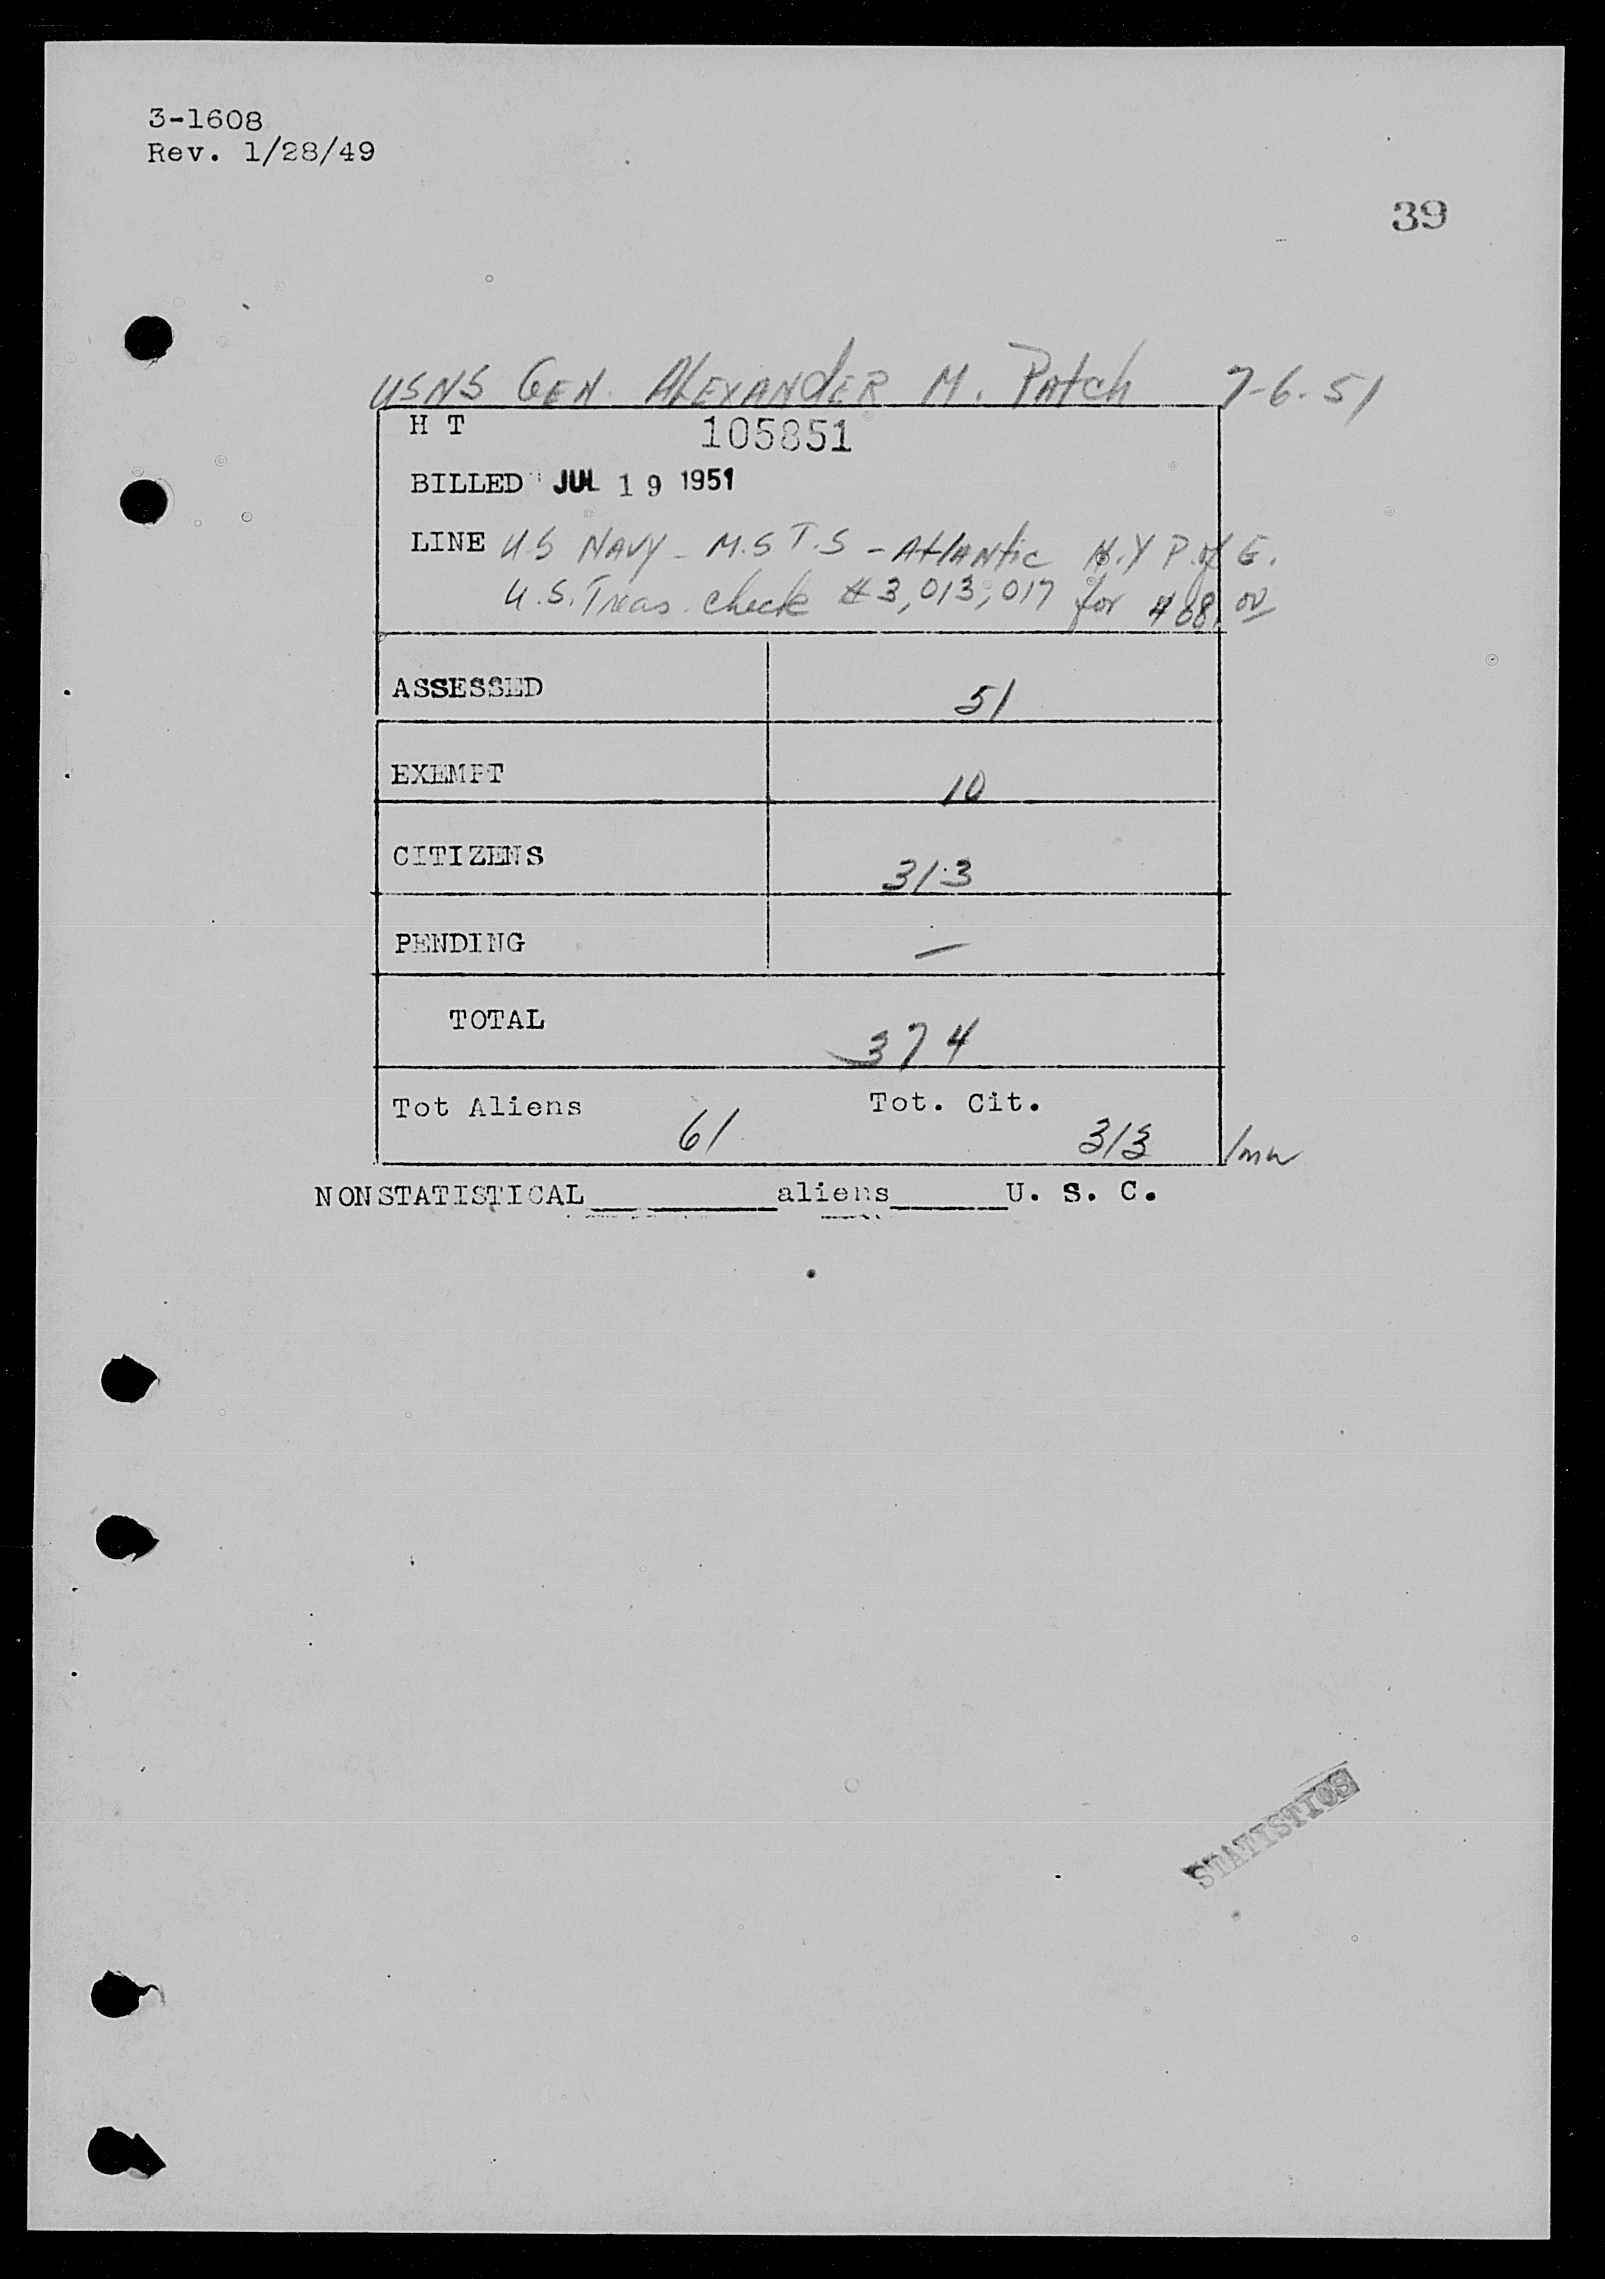 3-1608
Rev. 1/28/49
39
USNS GEN. ALEXANDER M. PAtch 7-6-51
H T 105851
BILLED JUL 19 1951
LINE U S NAVY - M.S T.S - AtlANtic N.Y P. of E.
U.S. Treas. check #3,013,017 for 408.00
ASSESSED 51
EXEMPT 10
CITIZENS 313
PENDING —
TOTAL 374
Tot Aliens 61 Tot. Cit. 313
NONSTATISTICAL__________aliens______U. S. C.
STATISTICS